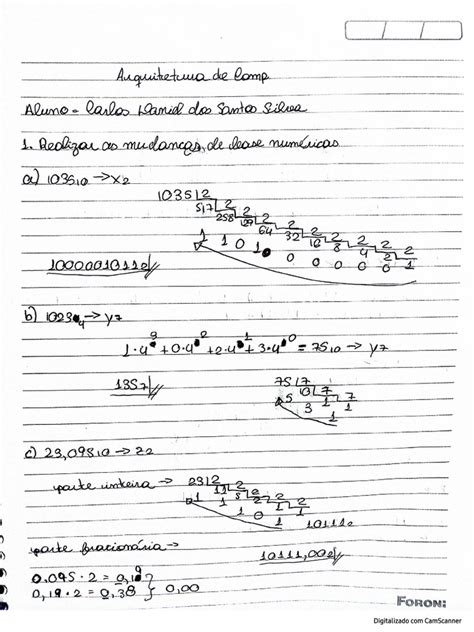 Arquitetura de Comp
Aluno - Carlos Daniel dos Santos Silva
1. Realizar as mudanças, de base numéricas
a) 1035₁₀ → x₂
1035 2
517 2
258 2
129 2
64 2
32 2
16 2
8 2
4 2
2 2
1 1 0 1 0 0 0 0 0 1
10000010112
b) 1023₄ → y₇
1·4³ + 0·4² + 2·4¹ + 3·4⁰ = 75₁₀ → y₇
135₇
75 7
5 10 7
3 1 7
1 1
c) 23,095₁₀ → z₂
parte inteira → 23 2
11 2
1 5 2
1 2 2
1 0 1
10111₂
parte fracionária →
10111,00₂
0.095 · 2 = 0,19
0,19 · 2 = 0,38 } 0,00
FORONI
Digitalizado com CamScanner